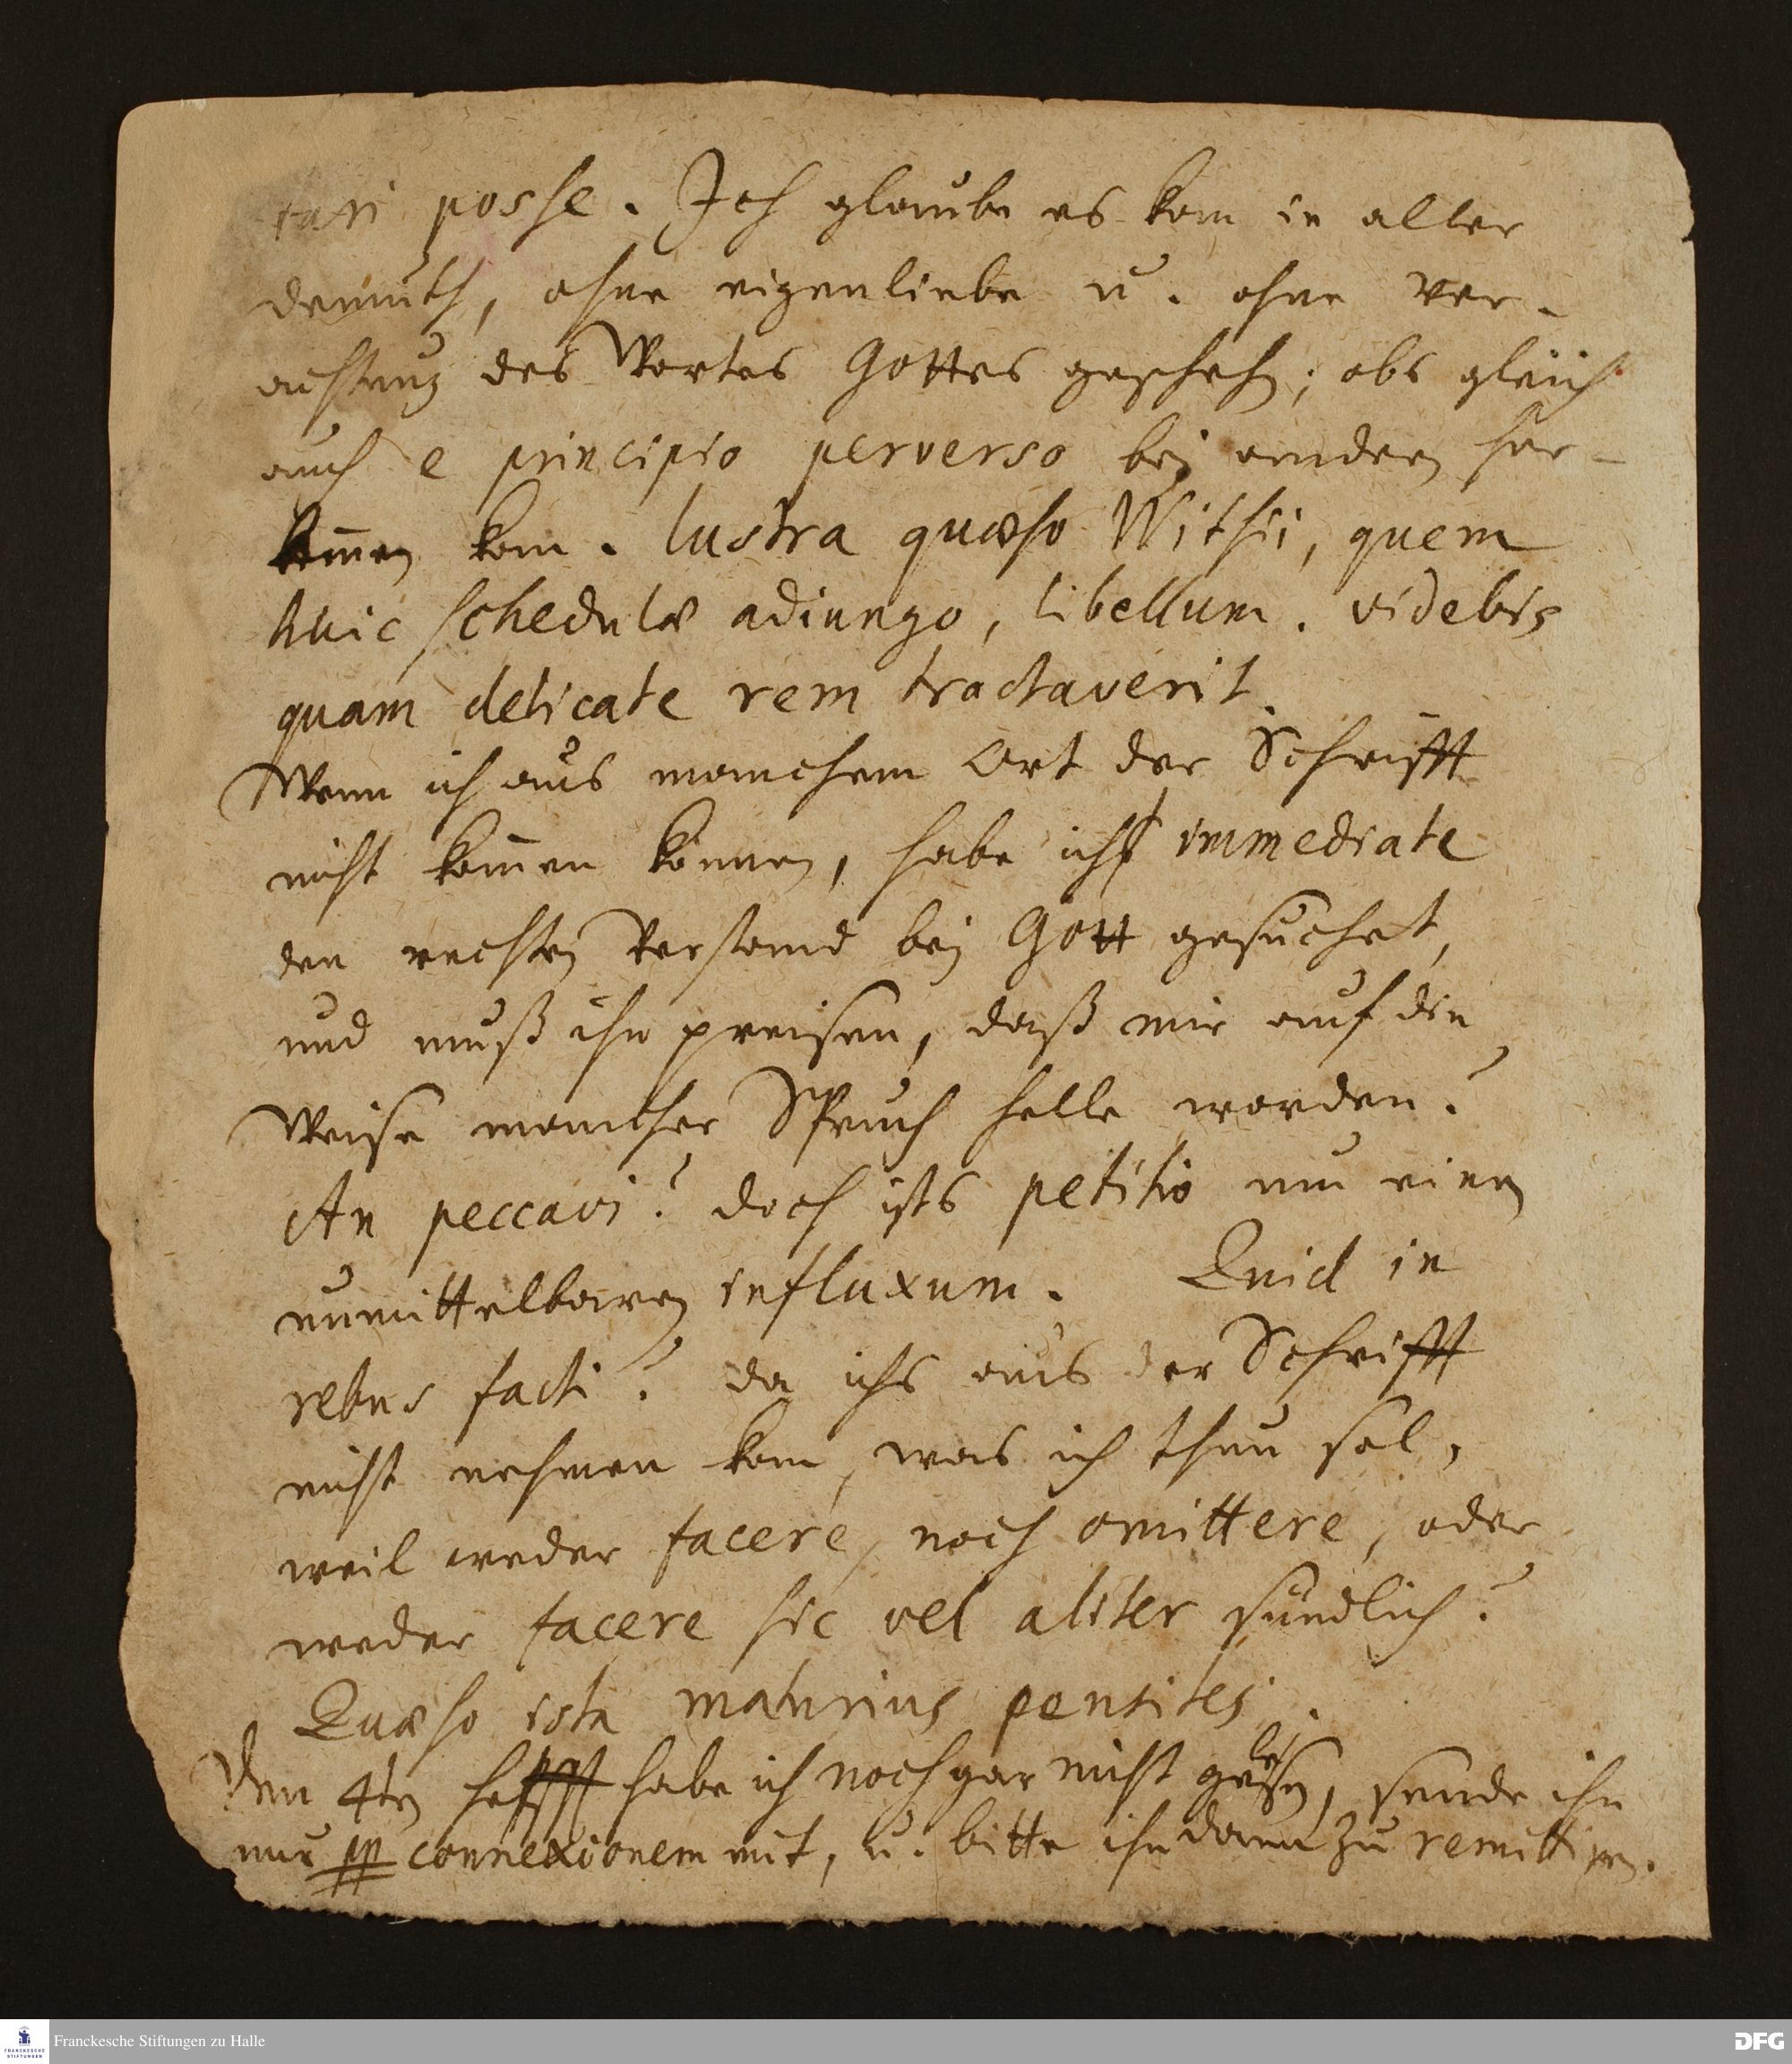 tari posse. Ich glaube es kan in aller
demuth, ohne eigenliebe u. ohne ver-
achtung des Wortes Gottes geschehen; obs gleich
auch e principio perverso bey andern her-
kom̃en kan. lustra quæso Witsii, quem
huic schedulæ adiungo, libellum. videbis
quam delicate rem tractaverit.
Wenn ich aus manchem Ort der Schrifft
nicht kom̃en können, habe ich immediate
den rechten Verstand bey Gott gesuchet,
und muß ihn preisen, daß mir auf die
Weise mancher Spruch helle worden?
An peccavi? doch ists petitio um einen
unmittelbaren influxum. Quid in
rebus facti? da ichs aus der Schrifft
nicht nehmen kan, was ich thun sol,
weil weder facere, noch omittere, oder
weder facere sic vel aliter sündlich?
Quæso ista maturius pensites.
Den 4ten hefft habe ich noch gar nicht gelesen, sende ihn
nur connexionem mit, u. bitte ihn dann zu remittiren.
Franckesche Stiftungen zu Halle
DFG